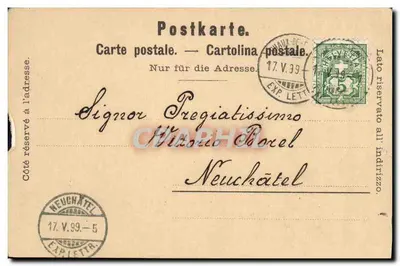 Postkarte.
Carte postale. — Cartolina postale.
Nur für die Adresse.
Côté réservé à l'adresse.
Lato riservato all' indirizzo.
17. V. 99.
EXP. LETTR.
HELVETIA
5
Signor Pregiatissimo
Vittorio Borel
Neuchâtel
NEUCHÂTEL
17. V. 99. – 5
EXP. LETTR.